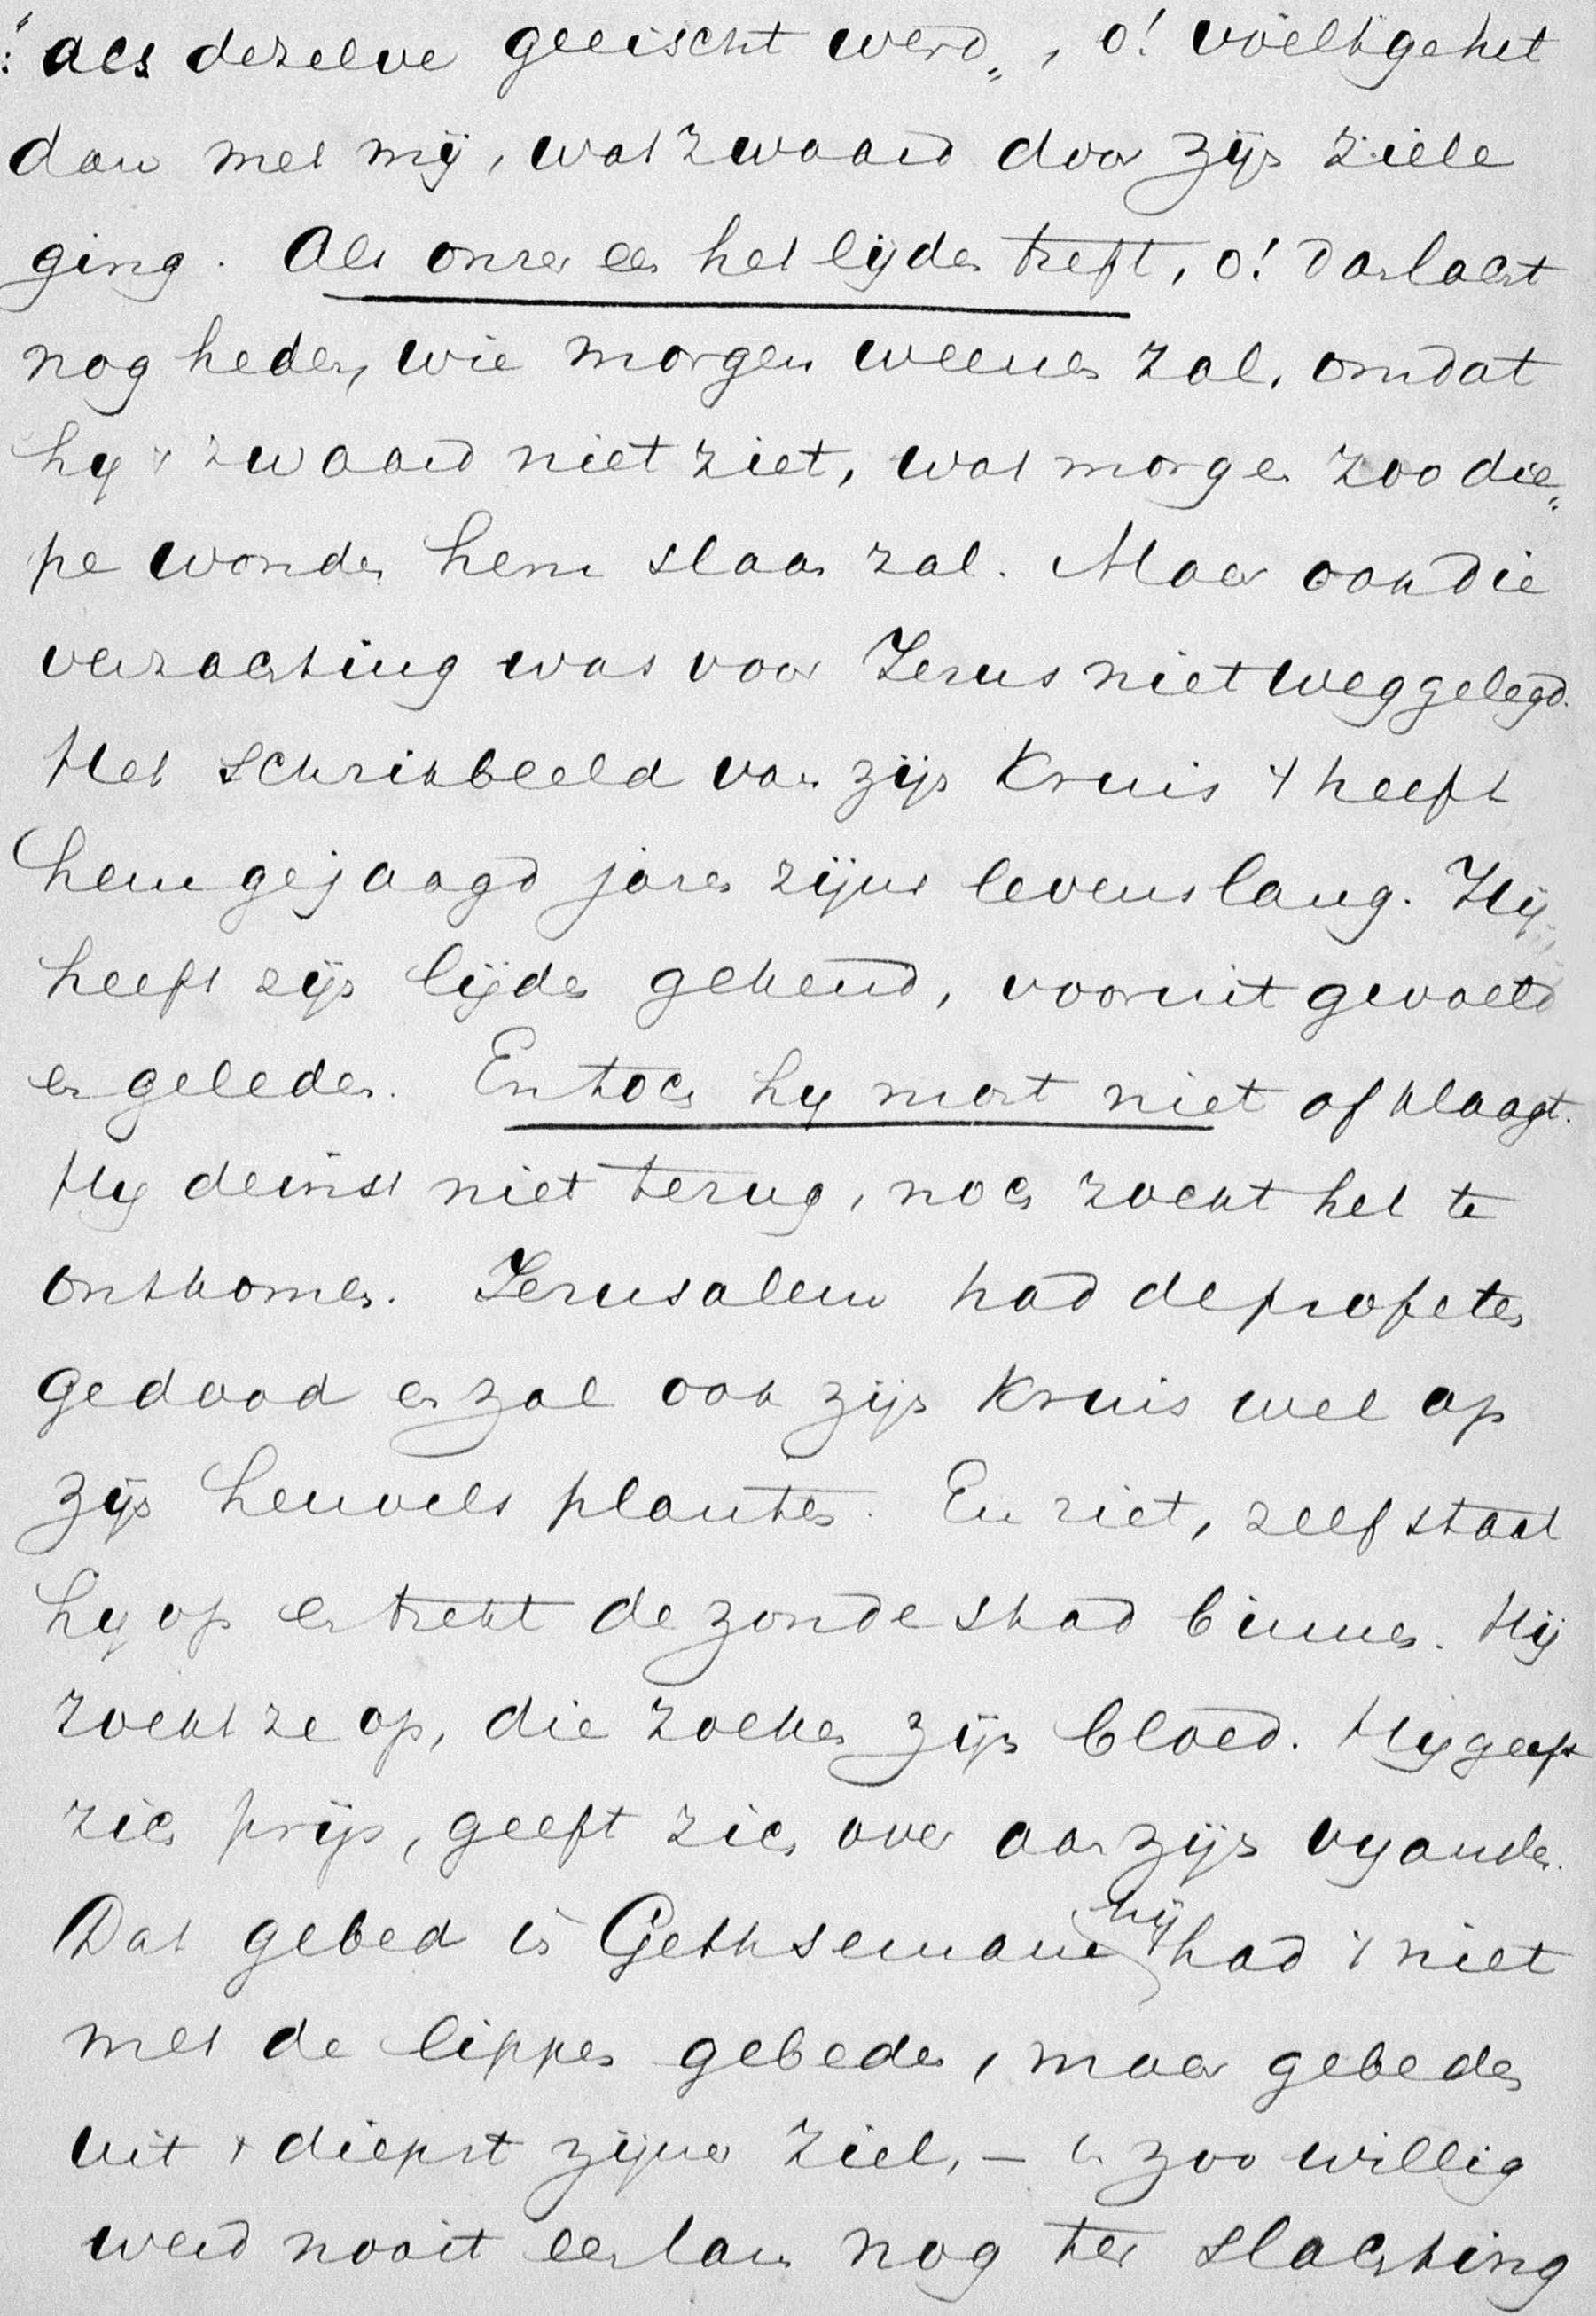 als dezelve geeischt werd„, o! voelt ge het
dan met mij, wat zwaard door zijn ziele
ging. Als onzer een het lijden treft, o! dan lacht
nog heden, wie morgen weenen zal, omdat
hy 't zwaard niet ziet, wat morgen zoo die„
pe wonden hem slaan zal. Maar ook die
verzachting was voor Jezus niet weggelegd.
Het schrikbeeld van zijn Kruis 't heeft
hem gejaagd jaren zijns levens lang. Hij
heeft zijn lijden gekend, vooruit gevoeld
en geleden. En toch hy mort niet of klaagt.
Hy deinst niet terug, noch zoekt het te
ontkomen. Jerusalem had de profeten
gedood en zal ook zijn Kruis wel op
zijn heuvels planten. En ziet, zelf staat
hy op en trekt de zondestad binnen. Hij
zoekt ze op, die zoeken zijn bloed. Hy geeft
zich prijs, geeft zich over aan zijn vyanden.
Dat gebed in Gethsemané hij had 't niet
met de lippen gebeden, maar gebeden
uit 't diepst zijner ziel, – en zoo willig
werd nooit een lam nog ter slachting